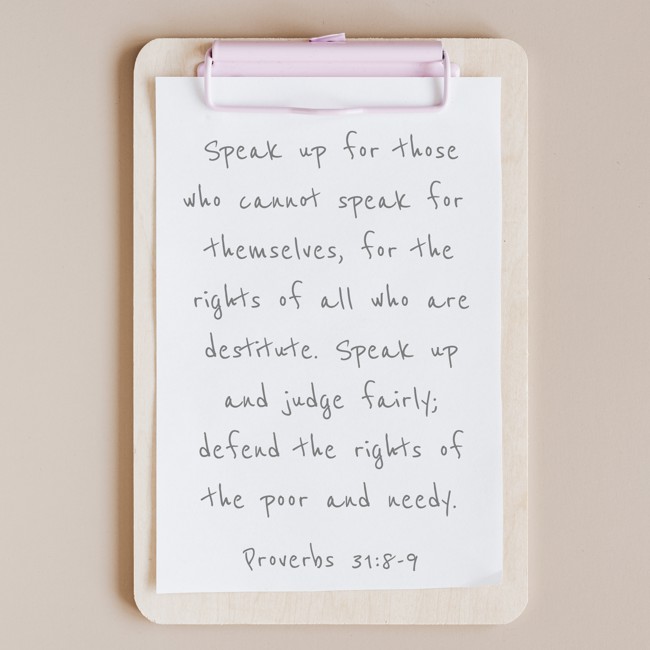 Speak up for those
who cannot speak for
themselves, for the
rights of all who are
destitute. Speak up
and judge fairly;
defend the rights of
the poor and needy.
Proverbs 31:8-9